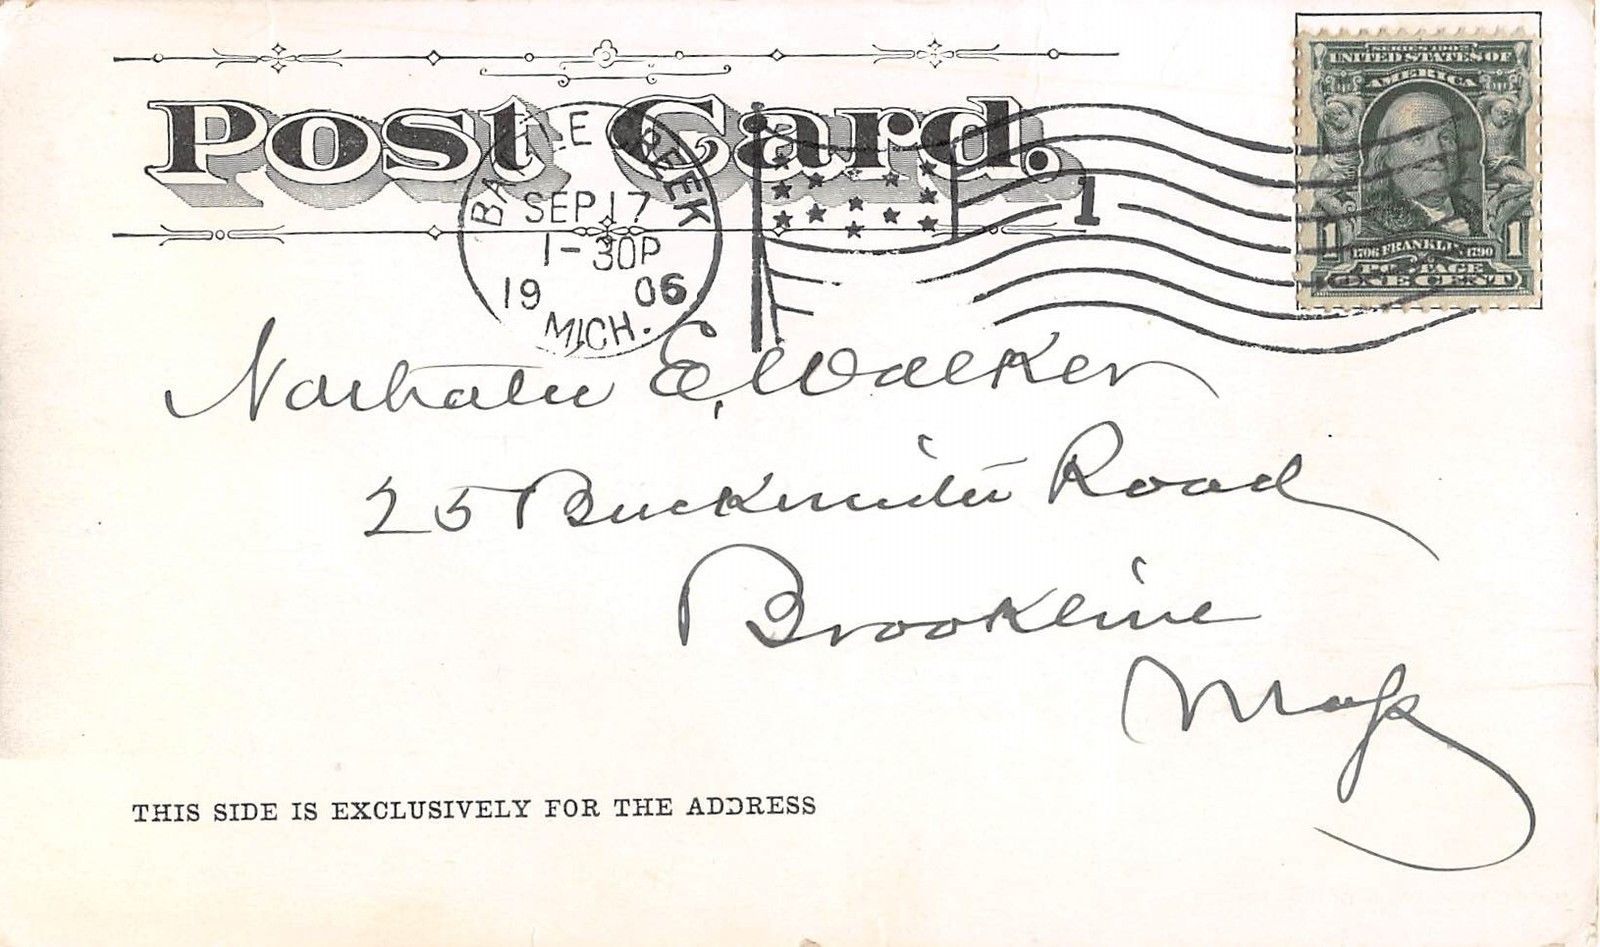 Post Card.
BATTLE CREEK
SEP 17
1-30P
1906
MICH.
1
SERIES 1902
UNITED STATES OF
AMERICA
1 1
1706 FRANKLIN 1790
POSTAGE
ONE CENT
E. Walker
25 Buckminster Road
Brookline
Mass
THIS SIDE IS EXCLUSIVELY FOR THE ADDRESS